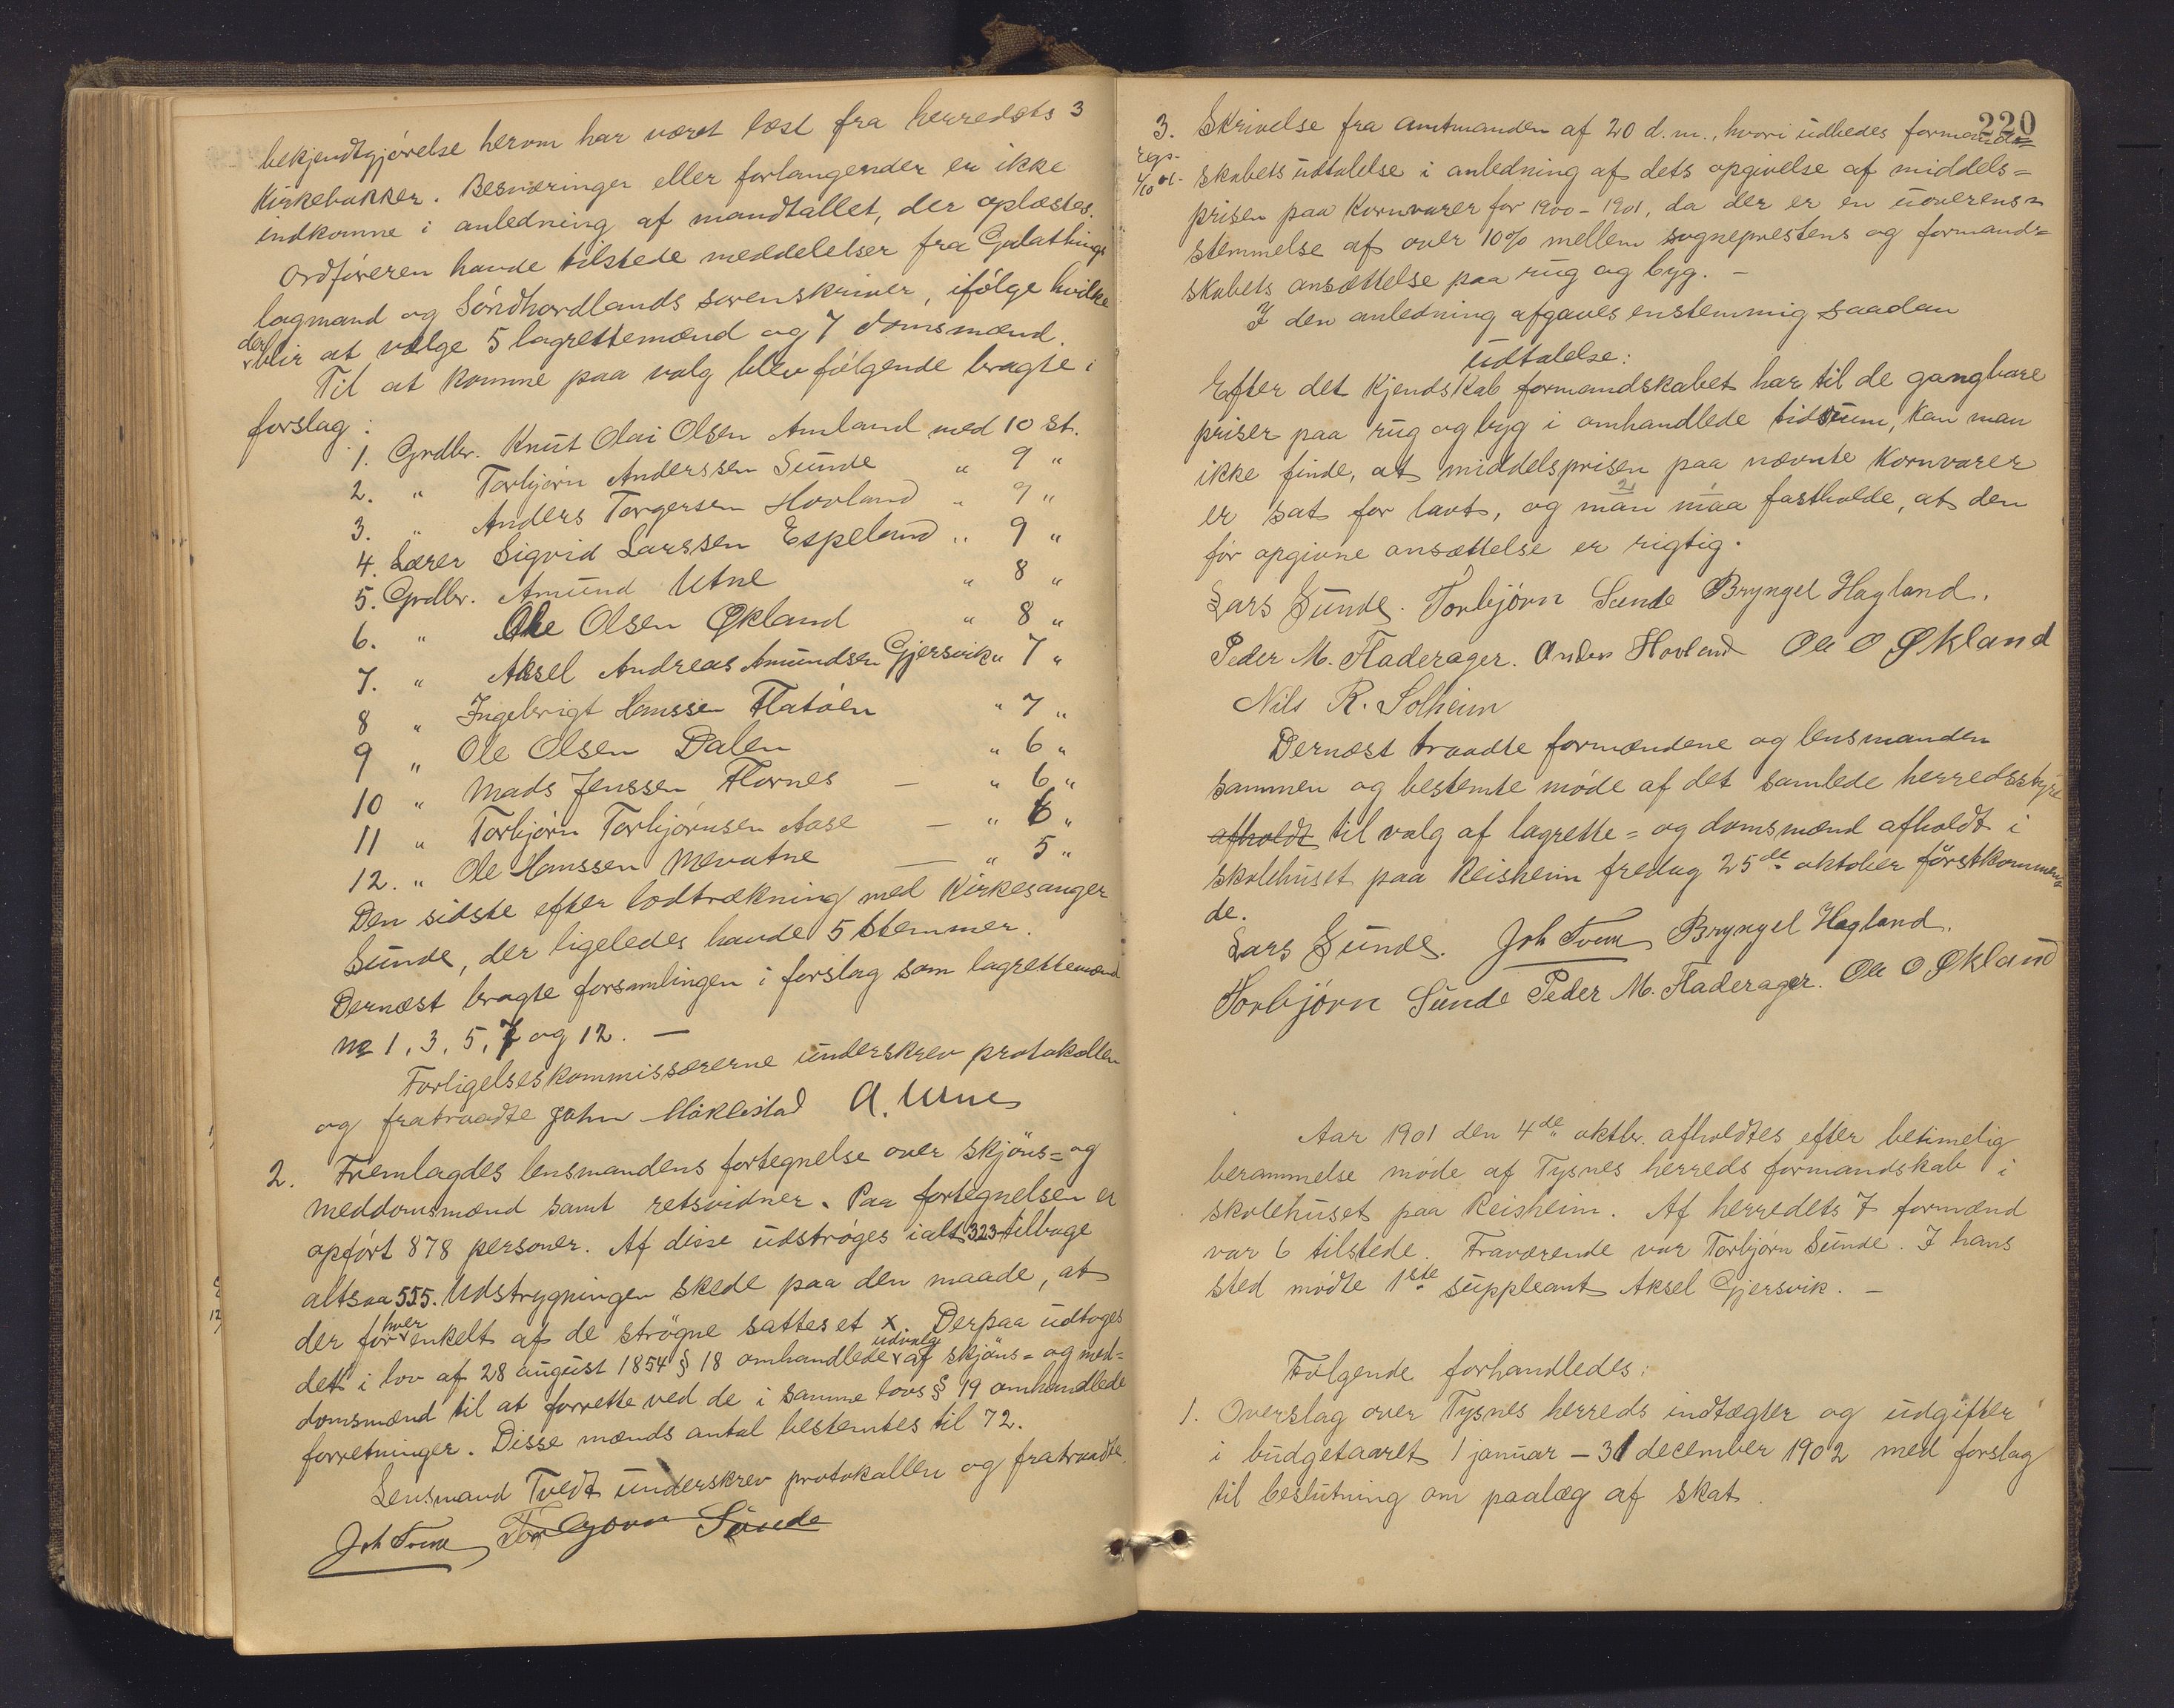 bekjendtgjørelse herom har været læst fra herredets 3
Kirkebakker. Besværinger eller forlangender er ikke
indkomne i anledning af mandtallet, der oplæstes.
Ordføreren havde tilstede meddelelser fra Gulathings
lagmand og Søndhordlands sorenskriver, ifølge hvilke
der blir at vælge 5 lagrettemænd og 7 domsmænd.
Til at komme paa valg blev følgende bragte i
forslag:
1. Grdbr. Knut Olai Olsen Amland med 10 st.
2. " Torbjørn Anderssen Sunde " 9 "
3. " Anders Torgersen Hovland " 9 "
4. Lærer Sigvid Larssen Espeland " 9 "
5. Grdbr. Amund Utne " 8 "
6. " Ole Olsen Økland " 8 "
7. " Aksel Andreas Amundsen Gjersvik " 7 "
8 " Ingebrigt Hanssen Flatøen " 7 "
9 " Ole Olsen Dalen " 6 "
10 " Mads Jenssen Flornes — " 6 "
11 " Torbjørn Torbjørnsen Aase — " 6 "
12. " Ole Hanssen Mevatne — " 5 "
Den sidste efter lodtrækning med Kirkesanger
Sunde, der ligeledes havde 5 stemmer.
Dernæst bragte forsamlingen i forslag som lagrettemænd
No 1, 3, 5, 7 og 12. —
Forligelseskommissærerne underskrev protokollen
og fratraadte John Møklestad A. Utne
2. Fremlagdes lensmandens fortegnelse over skjøns= og
meddomsmænd samt retsvidner. Paa fortegnelsen er
opført 878 personer. Af disse udstrøges ialt 323 tilbage
altsaa 555. Udstrygningen skede paa den maade, at
der for hver enkelt af de strøgne sattes et x. Derpaa udtoges
det i lov af 28 august 1854 § 18 omhandlede udvalg af skjøns= og med=
domsmænd til at forrette ved de i samme lovs § 19 omhandlede
forretninger. Disse mænds antal bestemtes til 72.
Lensmand Tvedt underskrev protokollen og fratraadte.
Joh Tvedt Torbjørn Sunde
220
3. Skrivelse fra amtmanden af 20 d.m., hvori udbedes formand=
reg.
4/10 01.
skabets udtalelse i anledning af dets opgivelse af middels=
prisen paa Kornvarer for 1900-1901, da der er en uoverens=
stemmelse af over 10% mellem sogneprestens og formand=
skabets ansættelse paa rug og byg. —
I den anledning afgaves enstemmig saadan
udtalelse:
Efter det Kjendskab formandskabet har til de gangbare
priser paa rug og byg i omhandlede tidsrum, kan man
ikke finde, at middelsprisen paa nævnte Kornvarer
er sat for lavt, og man maa fastholde, at den
før opgivne ansættelse er rigtig.
Lars Sunde. Torbjørn Sunde Bryngel Hagland.
Peder M. Fladerager. Anders Hovland Ole O Økland
Nils R. Solheim
Dernæst traadte formændene og lensmanden
sammen og bestemte møde af det samlede herredsstyre
afholdt til valg af lagrette= og domsmænd afholdt i
skolehuset paa Reisheim fredag 25de oktober førstkommen=
de.
Lars Sunde. Joh Tvedt Bryngel Hagland.
Torbjørn Sunde Peder M. Fladerager. Ole O Økland
Aar 1901 den 4de oktbr. afholdtes efter betimelig
berammelse møde af Tysnes herreds formandskab i
skolehuset paa Reisheim. Af herredets 7 formænd
var 6 tilstede. Fraværende var Torbjørn Sunde. I hans
sted mødte 1ste suppleant Aksel Gjersvik. —
Følgende forhandledes:
1. Overslag over Tysnes herreds indtægter og udgifter
i budgetaaret 1 januar – 31 december 1902 med forslag
til beslutning om paalæg af skat.